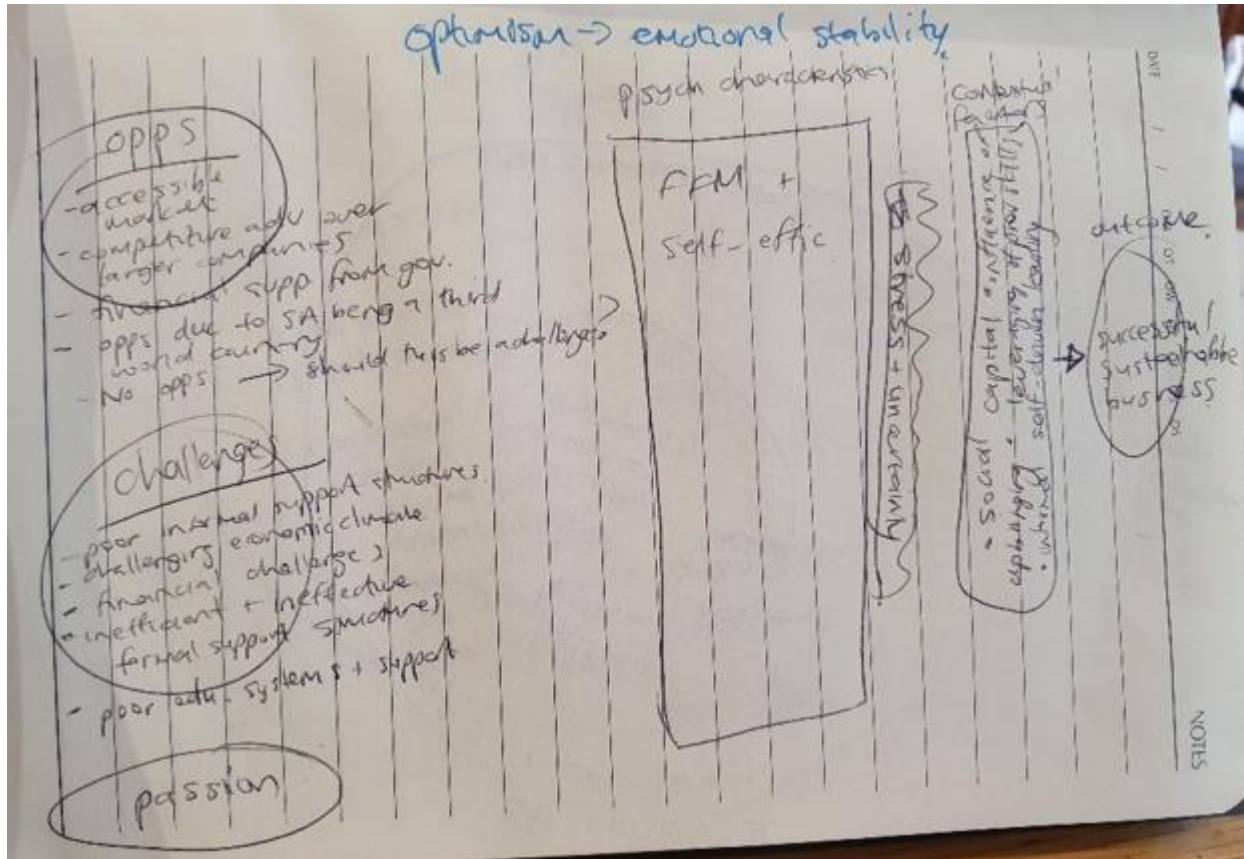 optimism -> emotional stability
psych characteristics
opps
- accessible
market
- competitive adv over
larger companies
- financial supp from gov.
- opps due to SA being a third
world country
- No opps -> should this be a challenge?
challenges
- poor informal support structures
- challenging economic climate
- financial challenges
- inefficient + ineffective
formal support structures
- poor edu. systems + support
passion
FFM +
self-effic
stress + uncertainty
• social capital • influence of
capitalising + leveraging off
• internal self-driven
outcome.
successful/
sustainable
business
DATE / /
NOTES